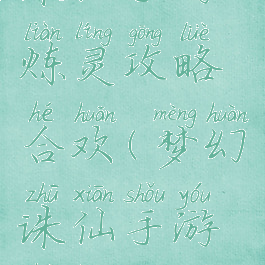 liàn líng gōng lüè
炼灵攻略
hé huān mèng huàn
合欢(梦幻
zhū xiān shǒu yóu
诛仙手游